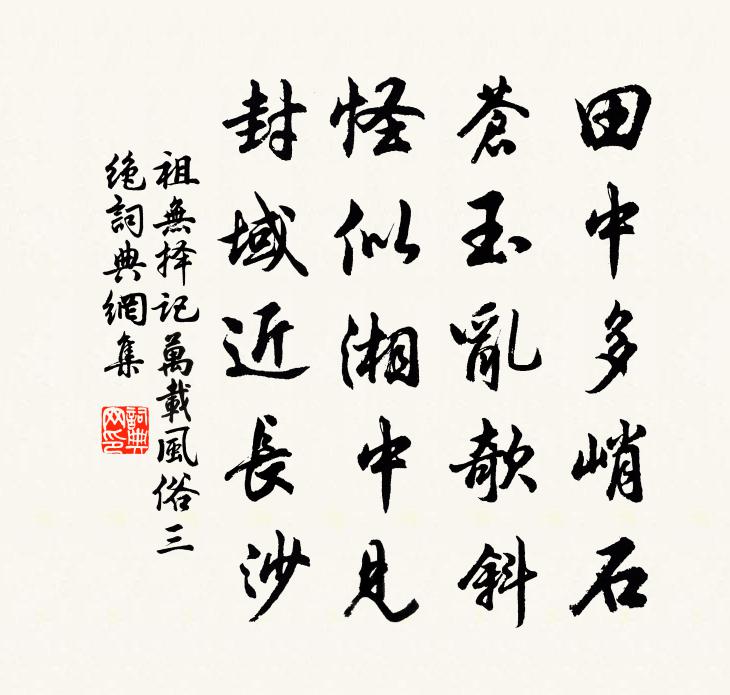 田中多峭石
蒼玉亂欹斜
怪似湘中見
封域近長沙
祖無择记萬載風俗三
绝詞典網集
詞典
网印